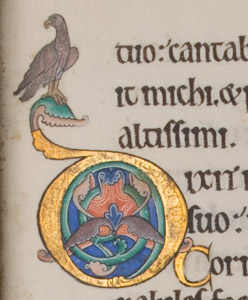 tuo: cantab
it michi. &
altissimi.
Dixit i
suo:
Cor